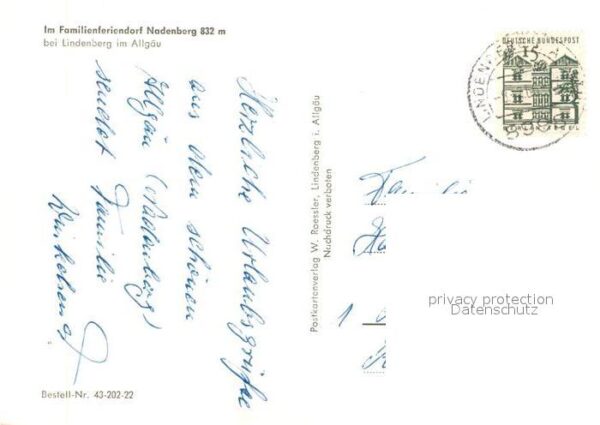 Im Familienferiendorf Nadenberg 832 m
bei Lindenberg im Allgäu
Herzliche Urlaubsgrüße
aus dem schönen
Allgäu (Nadenberg)
sendet Familie
Postkartenverlag W. Roessler, Lindenberg i. Allgäu
Nachdruck verboten
DEUTSCHE BUNDESPOST
15
Familie
1
privacy protection
Datenschutz
Bestell-Nr. 43-202-22